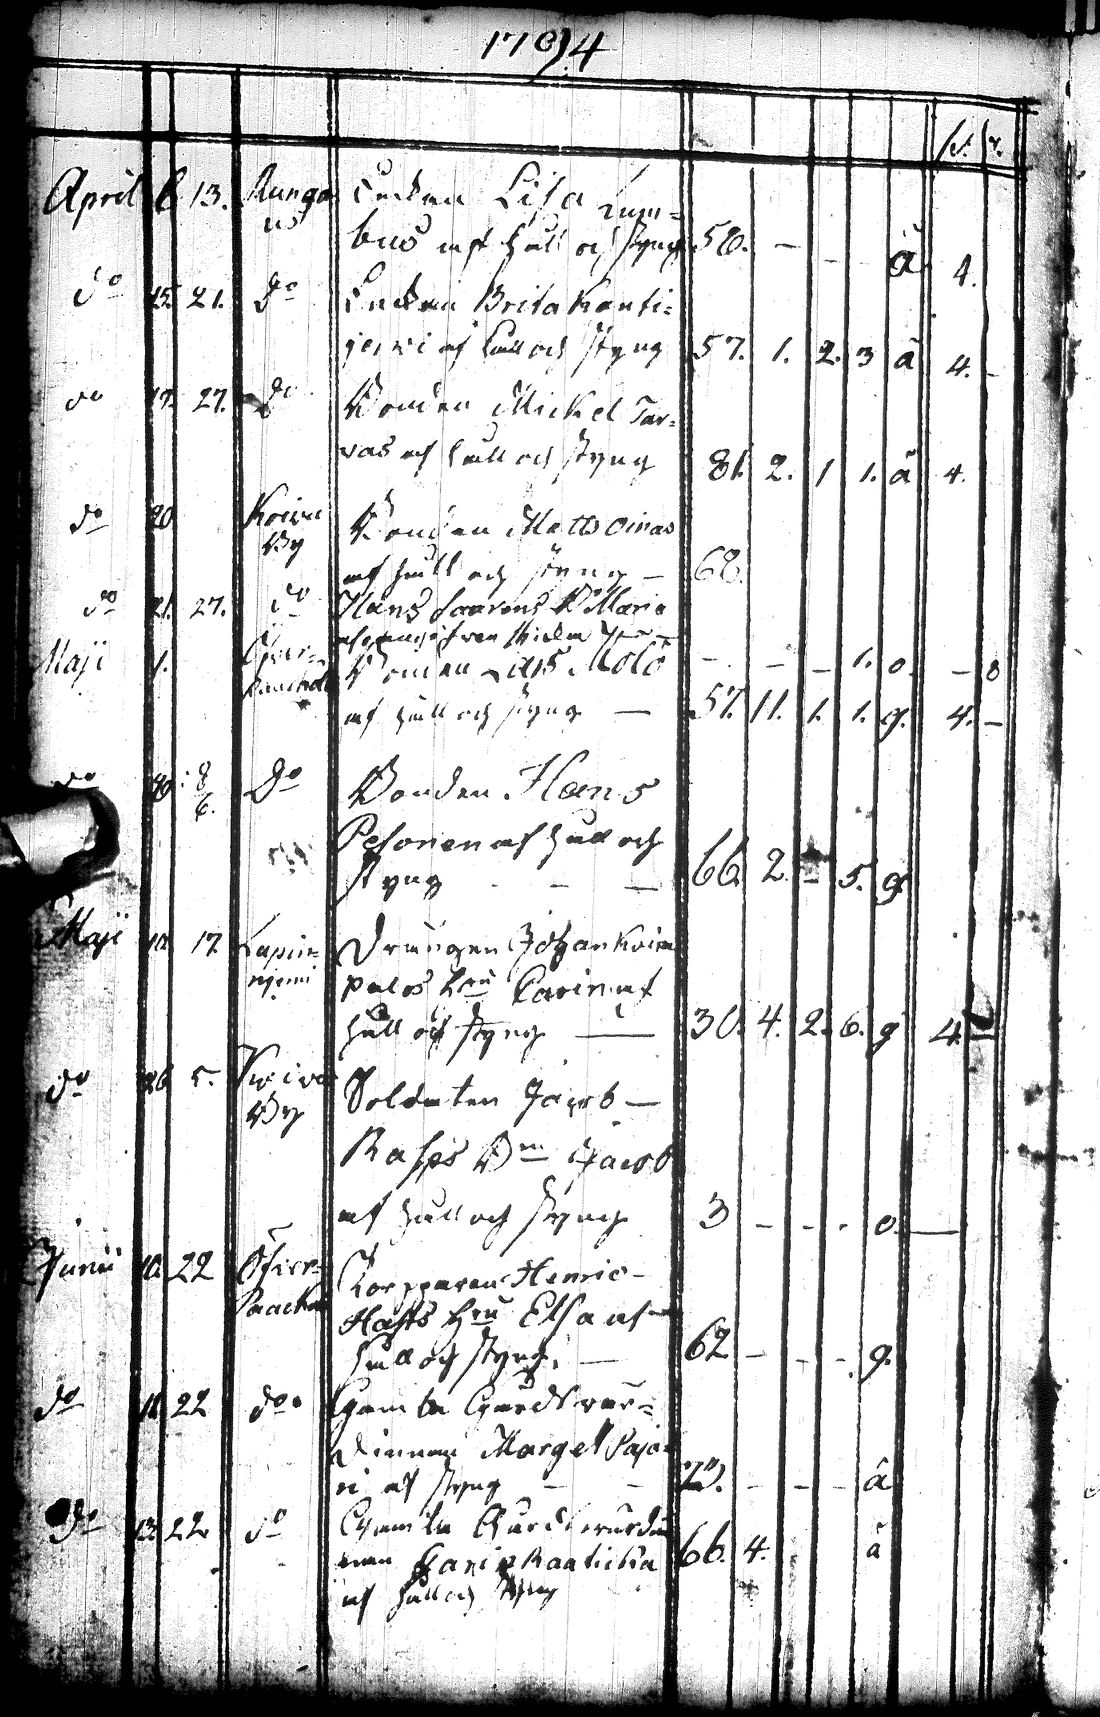 1794
April 8 13. Runga Enckan Lisa Lum=
us bus af håll och styng 58. - - ä 4.
do 15. 21. Do Enckan Brita Kanti=
jervi af håll och styng 57. 1. 2. 3 ä 4. -
do 17. 27. Do Bonden Mickel Tar=
vas af håll och styng 81. 2. 1 1. ä 4.
do 20 Koivu Bonden Matts Oinas
By af håll och styng - 68.
do 21. 27. do Hans B. Maria
Maji 1. Öfver= - - - 1. o. - 8
Bonden Lars Molo
af håll och styng - 57. 11. 1. 1. g. 4. -
do 8 Do Bonden Hans
6. Pesonen af håll och
styng - - - 66. 2. - 5. g.
Maji 10. 17 Lapin= Drängen Johan Koivu
niemi palos Hru Carin af
håll och styng - 30. 4. 2. 6. g 4. -
do 26 5. Koivu Soldaten Jacob -
By Rasps Bn Jacob
af håll och styng 3 - - - o. -
Junii 10. 22 Öfver= Torpparen Henric -
Paacko Hasts Hru Elsa af
håll och styng. - 62 - - - g.
do 11. 22 do. Gamla Gårdsvär=
dinnan Marget Paja=
ri af styng - - 73. - - - ä
Do 13. 22. do Gamla Gårdsvärdin
nan Carin 66. 4. ä
af håll och styng